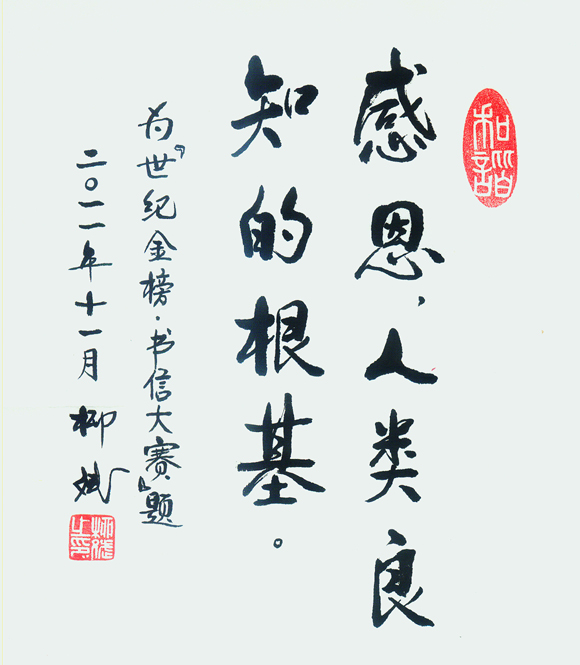 和谐
感恩，人类良
知的根基。
为『世纪金榜·书信大赛』题
二〇一一年十一月 柳斌
柳斌之印